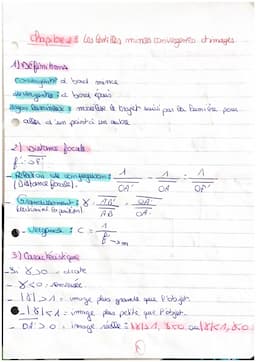 Chapitre 2 : Les lentilles minces convergentes et images
1) Définitions
convergente : à bord mince
divergente : à bord épais
rayon lumineux : modélise le trajet suivi par la lumière pour
aller d'un point à un autre
2) Distance focale
f' = OF'
- Relation de conjugaison : 1/OA' - 1/OA = 1/OF'
(Distance focale).
- Grandissement : γ = A'B'/AB = OA'/OA
- Vergence : C = 1/f' → m
3) Caractéristique
- Si γ > 0 = droite
- γ < 0 = renversée
- |γ| > 1 = image plus grande que l'objet.
- |γ| < 1 = image plus petite que l'objet.
- OA' > 0 = image réelle : |γ| > 1, γ < 0 ou |γ| < 1, γ < 0